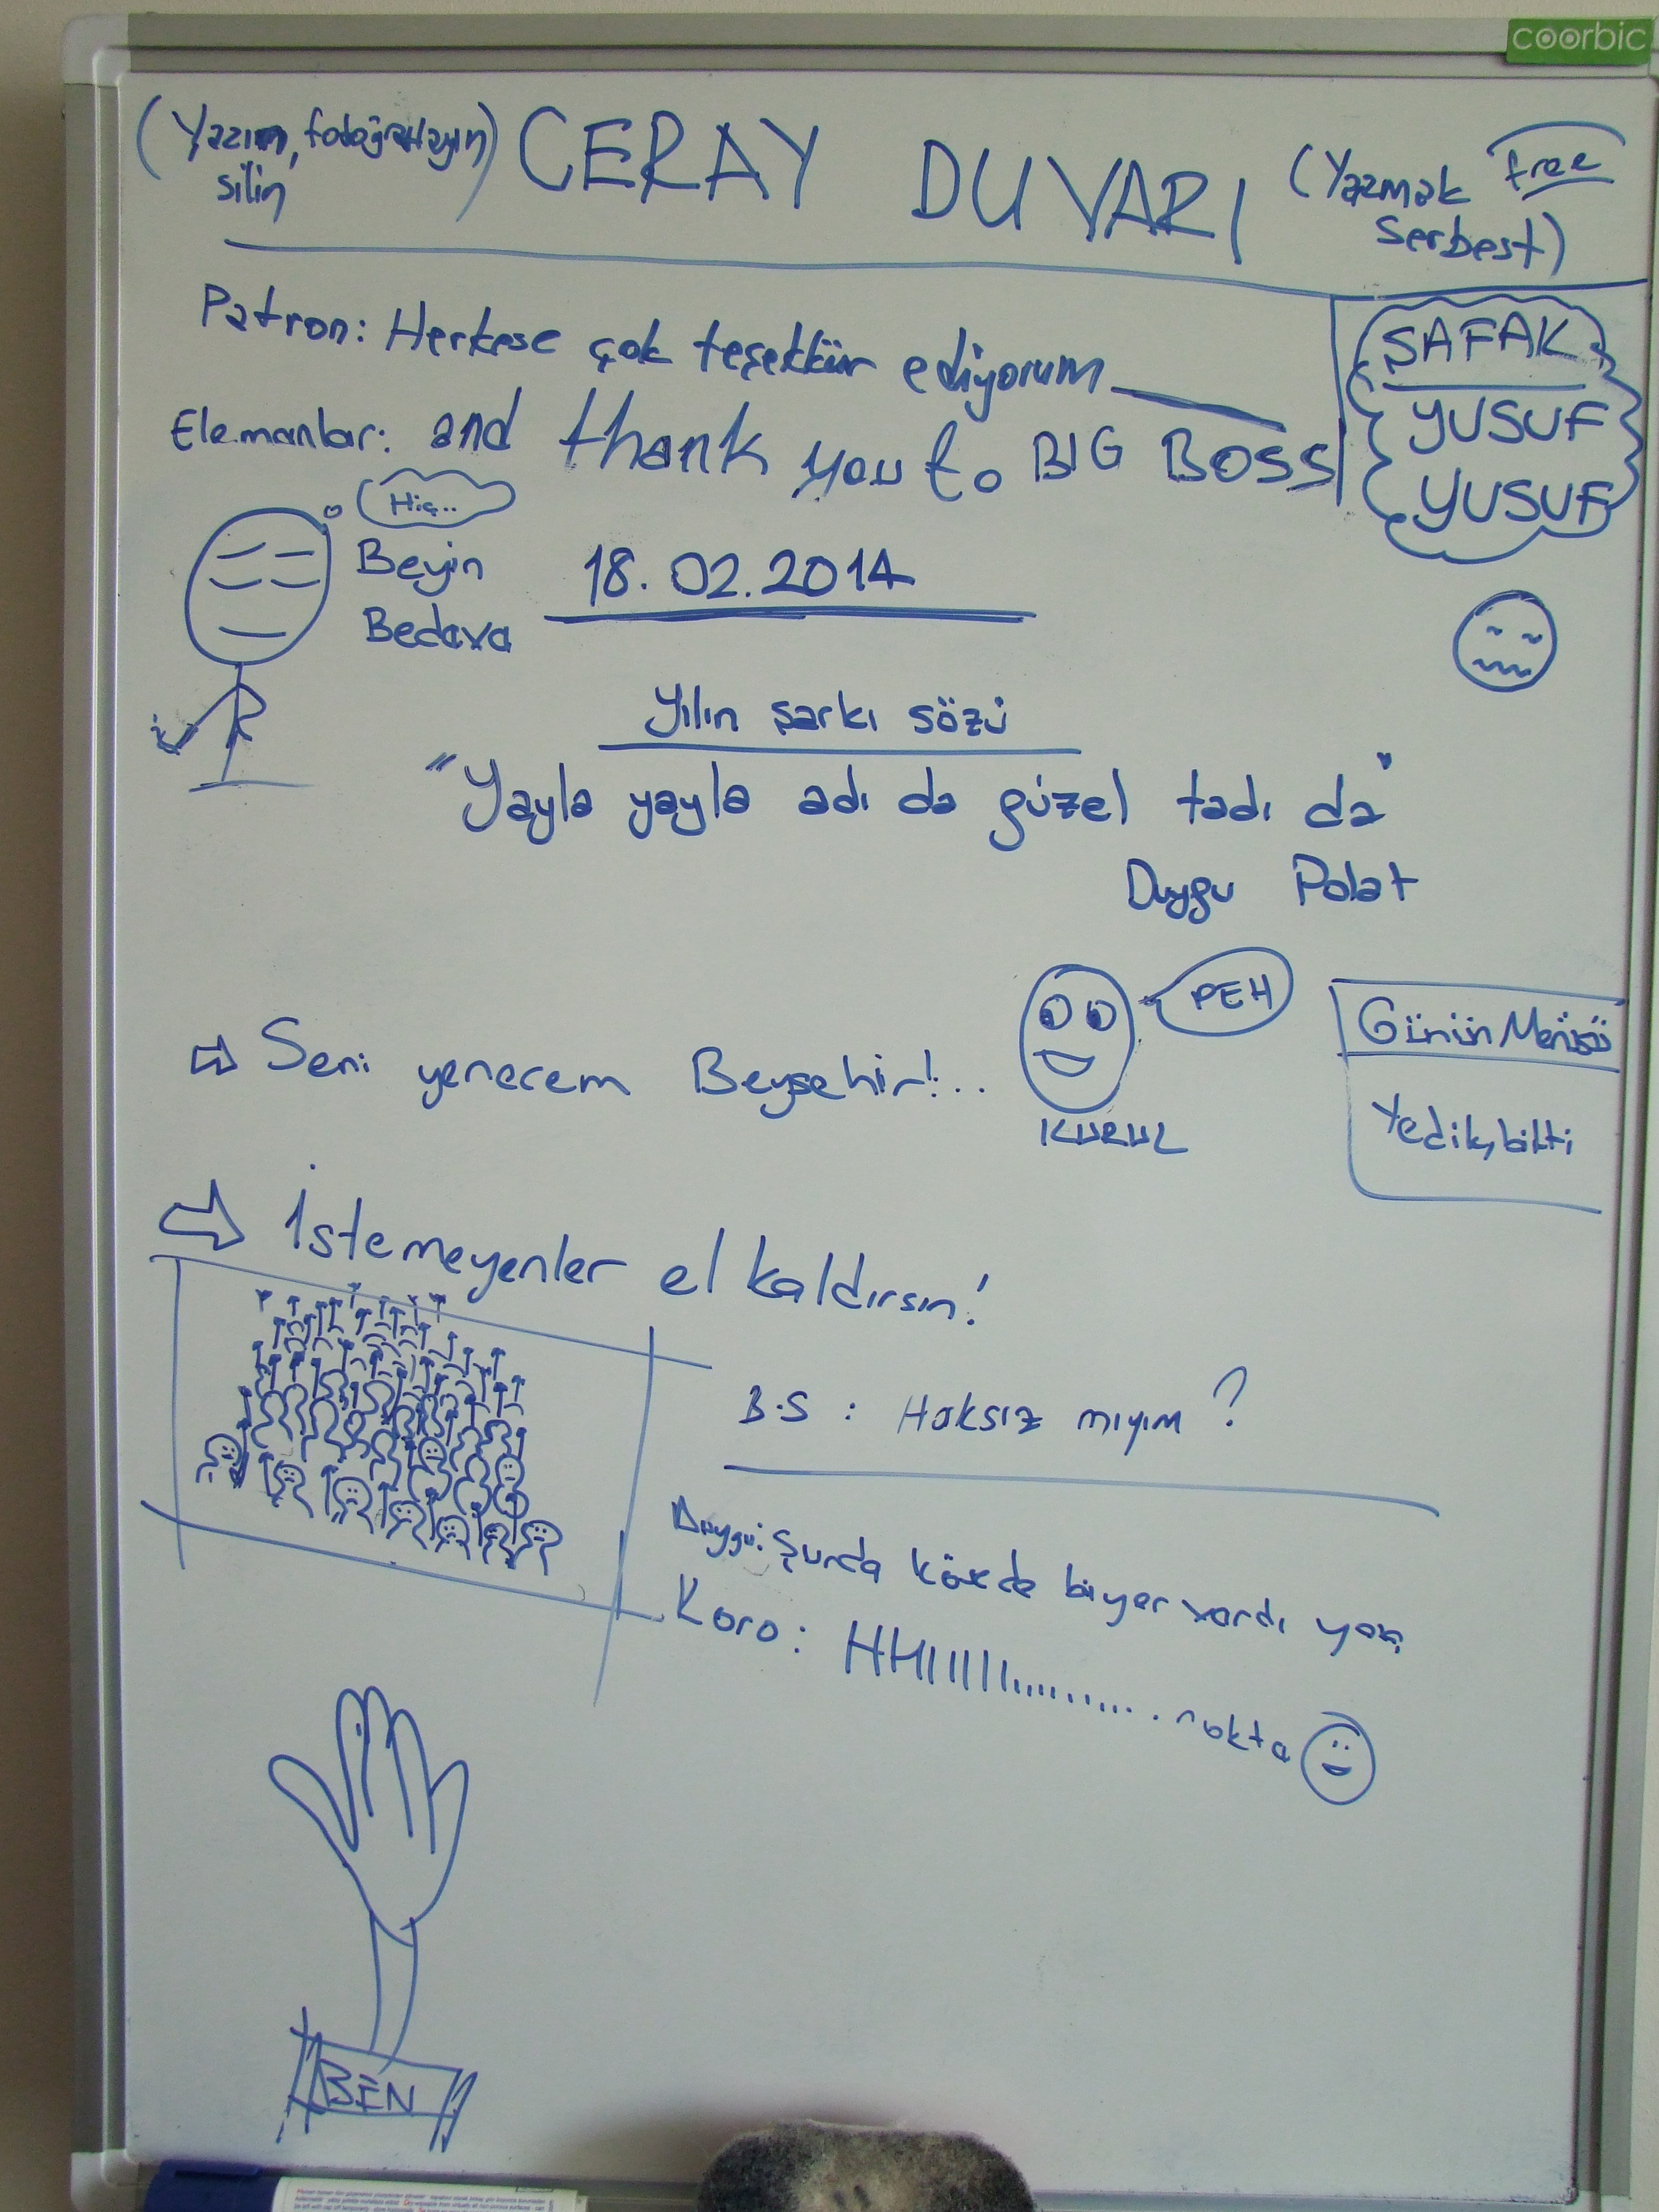 coorbic
(Yazın, fotoğraflayın)
silin
CERAY DUVARI
(Yazmak free
Serbest)
Patron: Herkese çok teşekkür ediyorum
Elemanlar: and thank you to BIG BOSS
ŞAFAK
YUSUF
YUSUF
Hiç..
Beyin
Bedava
18.02.2014
Yılın şarkı sözü
"Yayla yayla adı da güzel tadı da"
Duygu Polat
⇨ Seni yenecem Beyşehir!..
PEH
KURUL
Günün Menüsü
Yedik, bitti
⇨ İstemeyenler el kaldırsın!
B.S : Haksız mıyım?
Duygu: Şurda köşede biyer vardı yaa
Koro: HHIIIIIı............ nokta
BEN